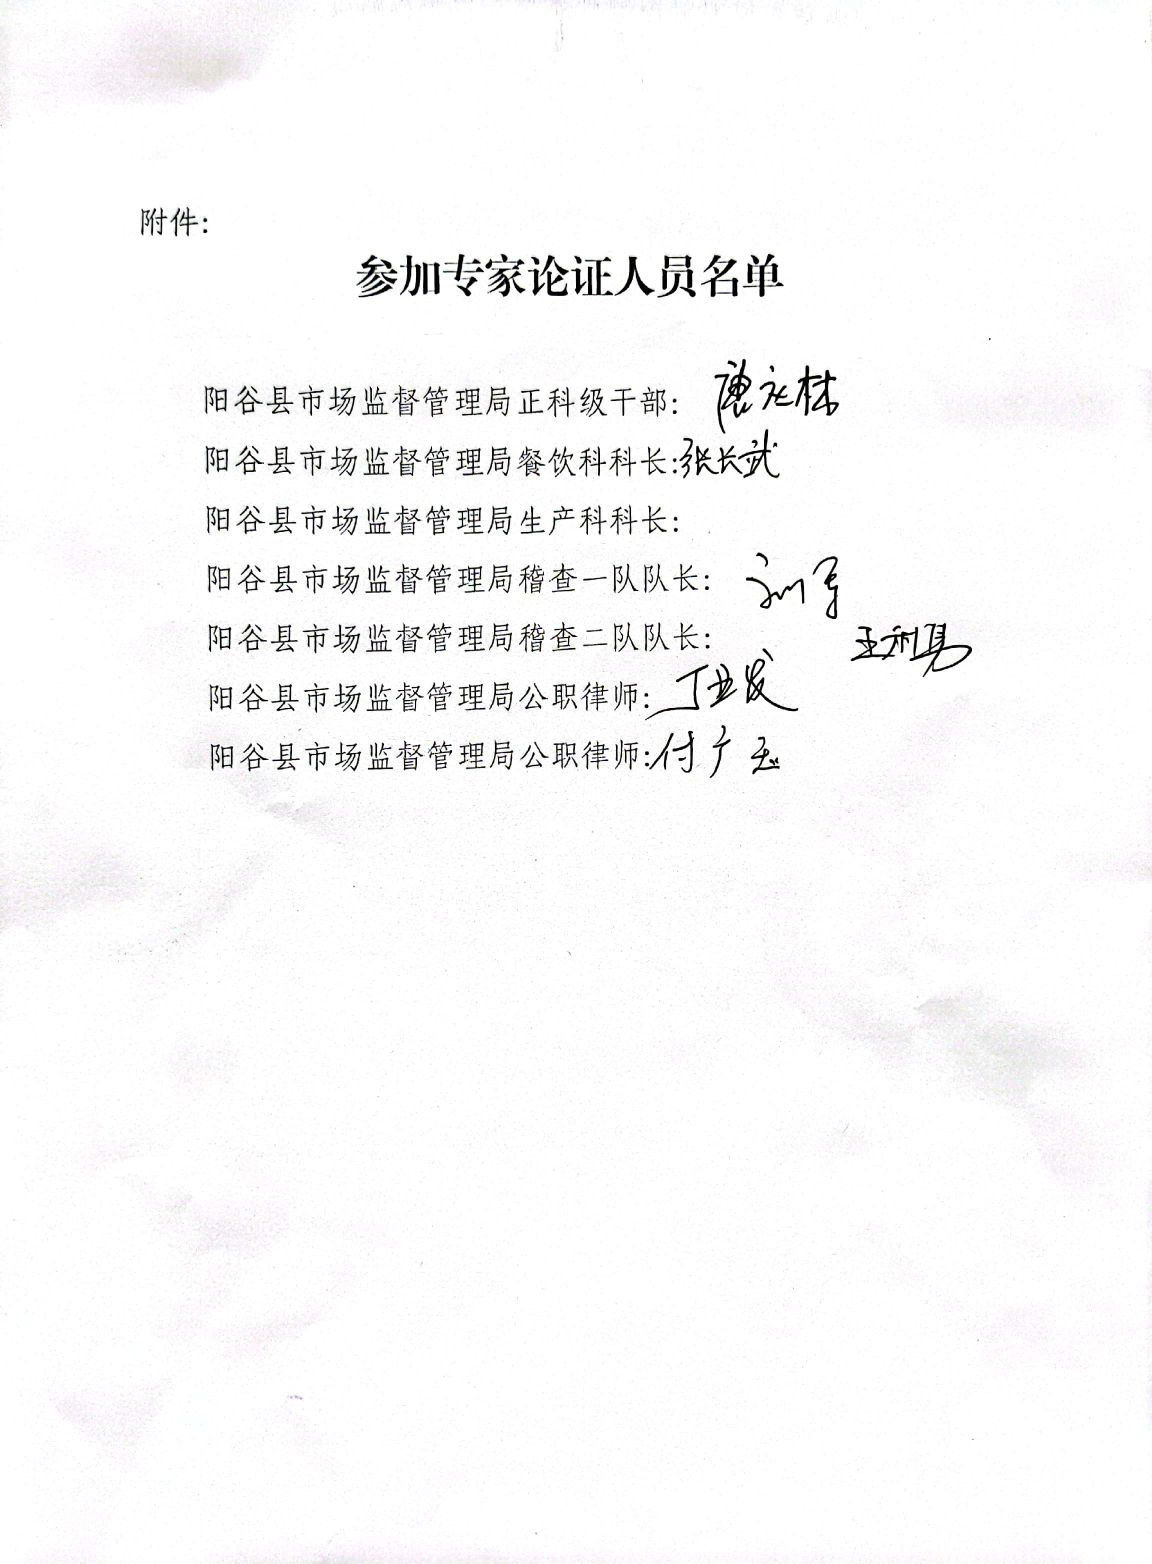 附件:
参加专家论证人员名单
阳谷县市场监督管理局正科级干部:
阳谷县市场监督管理局餐饮科科长:张长武
阳谷县市场监督管理局生产科科长:
阳谷县市场监督管理局稽查一队队长:刘军
阳谷县市场监督管理局稽查二队队长:王利勇
阳谷县市场监督管理局公职律师:丁业发
阳谷县市场监督管理局公职律师:付广